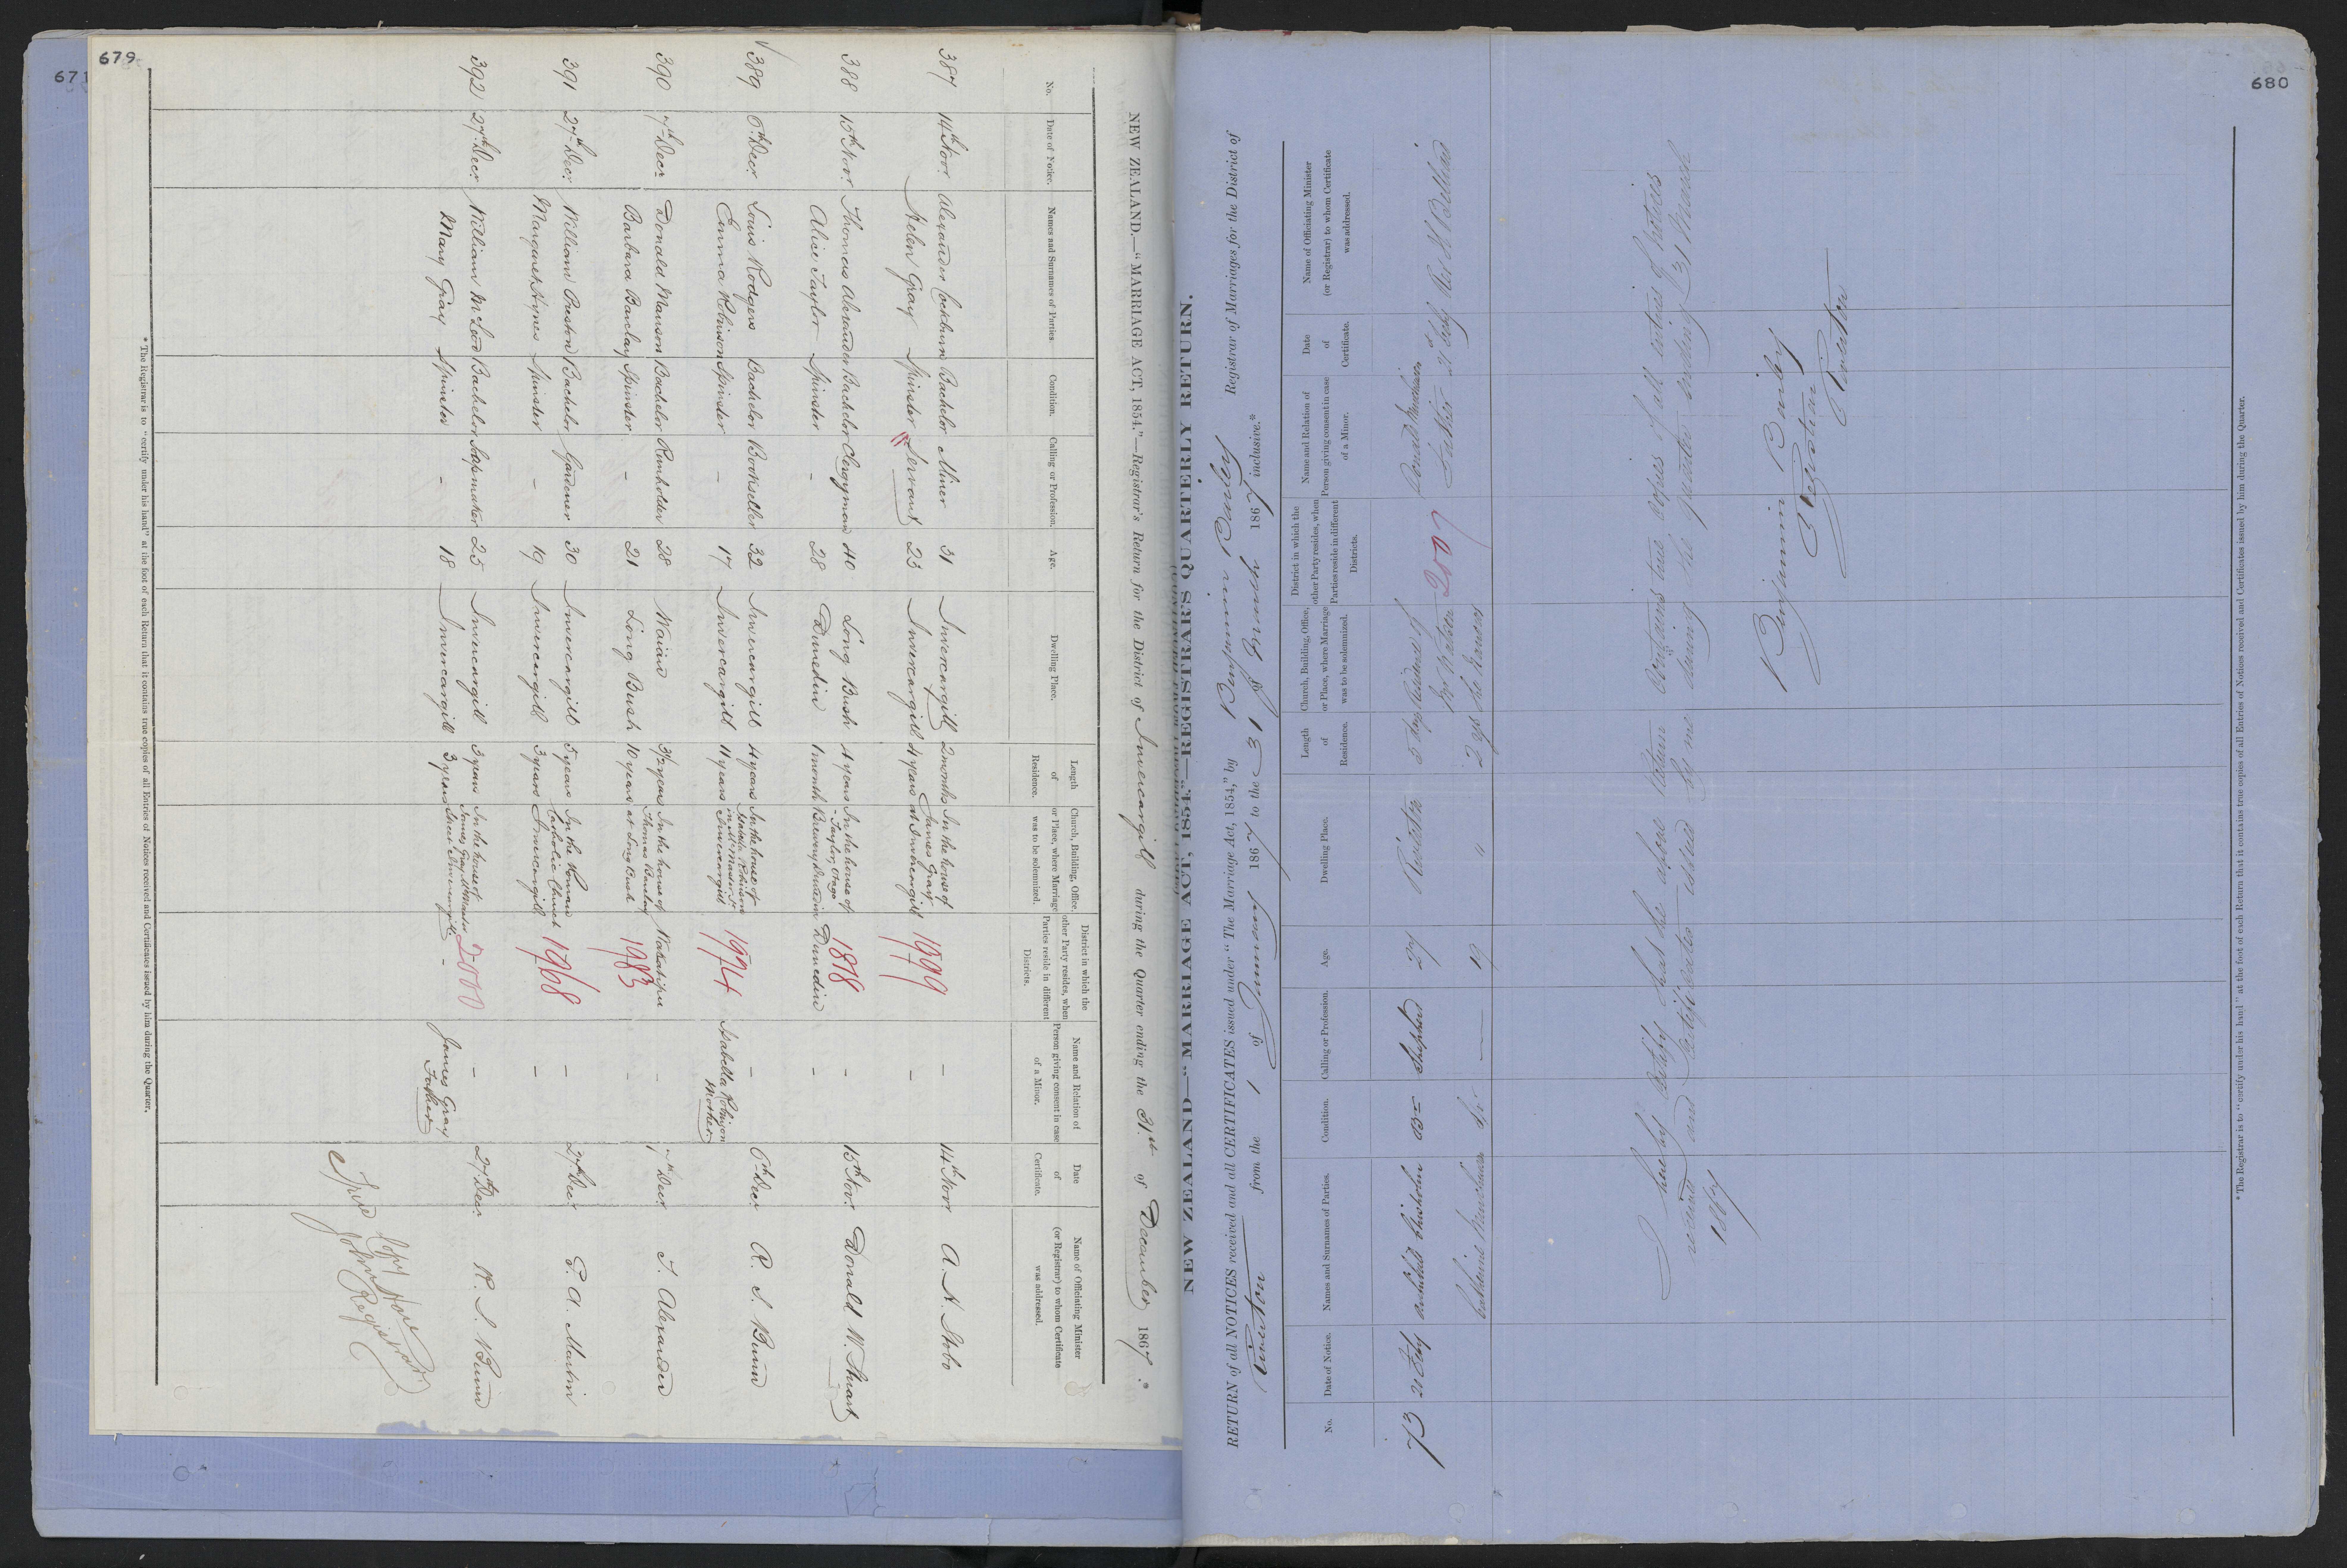 679
671
NEW ZEALAND.—"MARRIAGE ACT, 1854."—Registrar's Return for the District of Invercargill during the Quarter ending the 31st of December 1867.*
No. Date of Notice. Names and Surnames of Parties. Condition. Calling or Profession. Age. Dwelling Place. Length of Residence. Church, Building, Office, or Place, where Marriage was to be solemnized. District in which the other Party resides, when Parties reside in different Districts. Name and Relation of Person giving consent in case of a Minor. Date of Certificate. Name of Officiating Minister (or Registrar) to whom Certificate was addressed.
387 14th Novr Alexander Cockburn Bachelor Miner 31 Invercargill 2 months In the house of James Gray 1999 - 14th Novr A. H. Stobo
Helen Gray Spinster Servant 23 Invercargill 4 years at Invercargill -
388 15th Novr Thomas Alexander Bachelor Clergyman 40 Long Bush 4 years In the house of Taylor Otago 1878 - 15th Novr Donald M. Stuart
Alice Taylor Spinster - 28 Dunedin 1 month Brewery Dunedin Dunedin -
389 6th Decr Louis Rodgers Bachelor Bookseller 32 Invercargill 4 years In the house of Isabella Robinson 1994 - 6th Decr R. S. Bunn
Emma Robinson Spinster - 17 Invercargill 11 years Invercargill Isabella Robinson Mother
390 7th Decr Donald Manson Bachelor Runholder 28 Waiau 3½ years In the house of Thomas Barclay Wakatipu - 7th Decr T. Alexander
Barbara Barclay Spinster - 21 Long Bush 10 years at Long Bush 1983 -
391 27th Decr William Preston Bachelor Gardener 30 Invercargill 5 years In the Roman Catholic Church 1968 - 27th Decr P. A. Martin
Margaret Hynes Spinster - 19 Invercargill 3 years Invercargill -
392 27th Decr William McLeod Bachelor Sapmaker 25 Invercargill 3 years In the house of James Gray 2000 - 27th Decr R. S. Bunn
Mary Gray Spinster - 18 Invercargill 3 years Street Invercargill - James Gray Father
True Copy
John
Registrar
* The Registrar is to "certify under his hand" at the foot of each Return that it contains true copies of all Entries of Notices received and Certificates issued by him during the Quarter.
680
NEW ZEALAND—"MARRIAGE ACT, 1854."—REGISTRAR'S QUARTERLY RETURN.
RETURN of all NOTICES received and all CERTIFICATES issued under "The Marriage Act, 1854," by Benjamin Bailey Registrar of Marriages for the District of
Riverton from the 1 of January 1867 to the 31 of March 1867 inclusive.*
No. Date of Notice. Names and Surnames of Parties. Condition. Calling or Profession. Age. Dwelling Place. Length of Residence. Church, Building, Office, or Place, where Marriage was to be solemnized. District in which the other Party resides, when Parties reside in different Districts. Name and Relation of Person giving consent in case of a Minor. Date of Certificate. Name of Officiating Minister (or Registrar) to whom Certificate was addressed.
73 21 Feby Archibald Chisholm Br Shepherd 27 Riverton 5 days Residence of 2007 Donald Murchison 21 Feby
Catherine Murchison Sp — 19 " 2 yrs Father
I hereby certify that the above Return contains true copies of all entries of Notices
received and Certificates issued by me during the quarter ending 31 March
1867
Benjamin Bailey
Registrar
Riverton
* The Registrar is to "certify under his hand" at the foot of each Return that it contains true copies of all Entries of Notices received and Certificates issued by him during the Quarter.